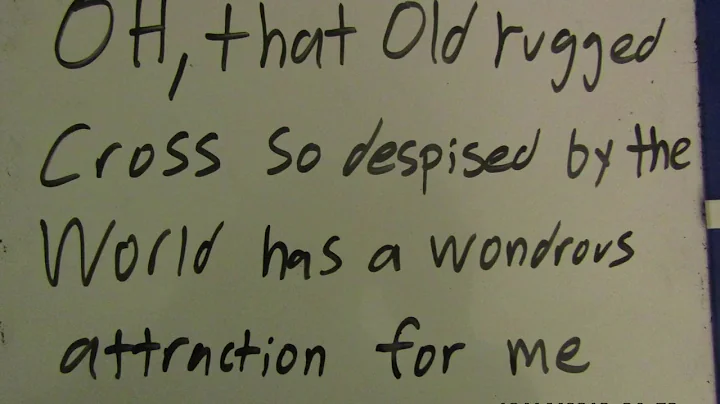 OH, that Old rugged
Cross so despised by the
World has a wondrous
attraction for me